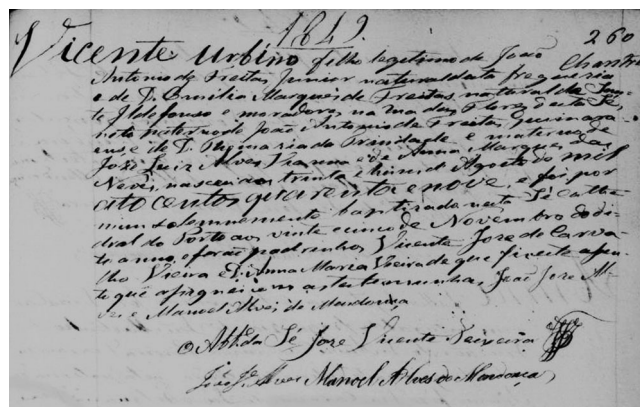 1849.
260
Vicente Urbino filho legitimo de João
Antonio de Freitas Junior natural desta freguezia
e de D. Emilia Marques de Freitas natural de
Ildefonso e moradores na rua das Flores desta Sé,
neto paterno de João Antonio de Freitas Guimara-
ens e de D. Thomazia da Trindade e materno de
José Luiz Alves Vianna e de Anna Marques das
Neves, nasceu aos trinta e hum d'Agosto de mil
oito centos quarenta e nove, e foi por
mim solemnemente baptizado nesta Sé Cathe-
dral do Porto aos vinte e cinco de Novembro do di-
to anno, e forão padrinhos Vicente Jose de Carva-
lho Vieira e Maria Vieira de que fiz este
que assignei com as testemunhas, João Jose Al-
e Manoel Alves de Mendonça
O Abb.e da Sé Jose Vicente Teixeira
Alves Manoel Alves de Mendonça